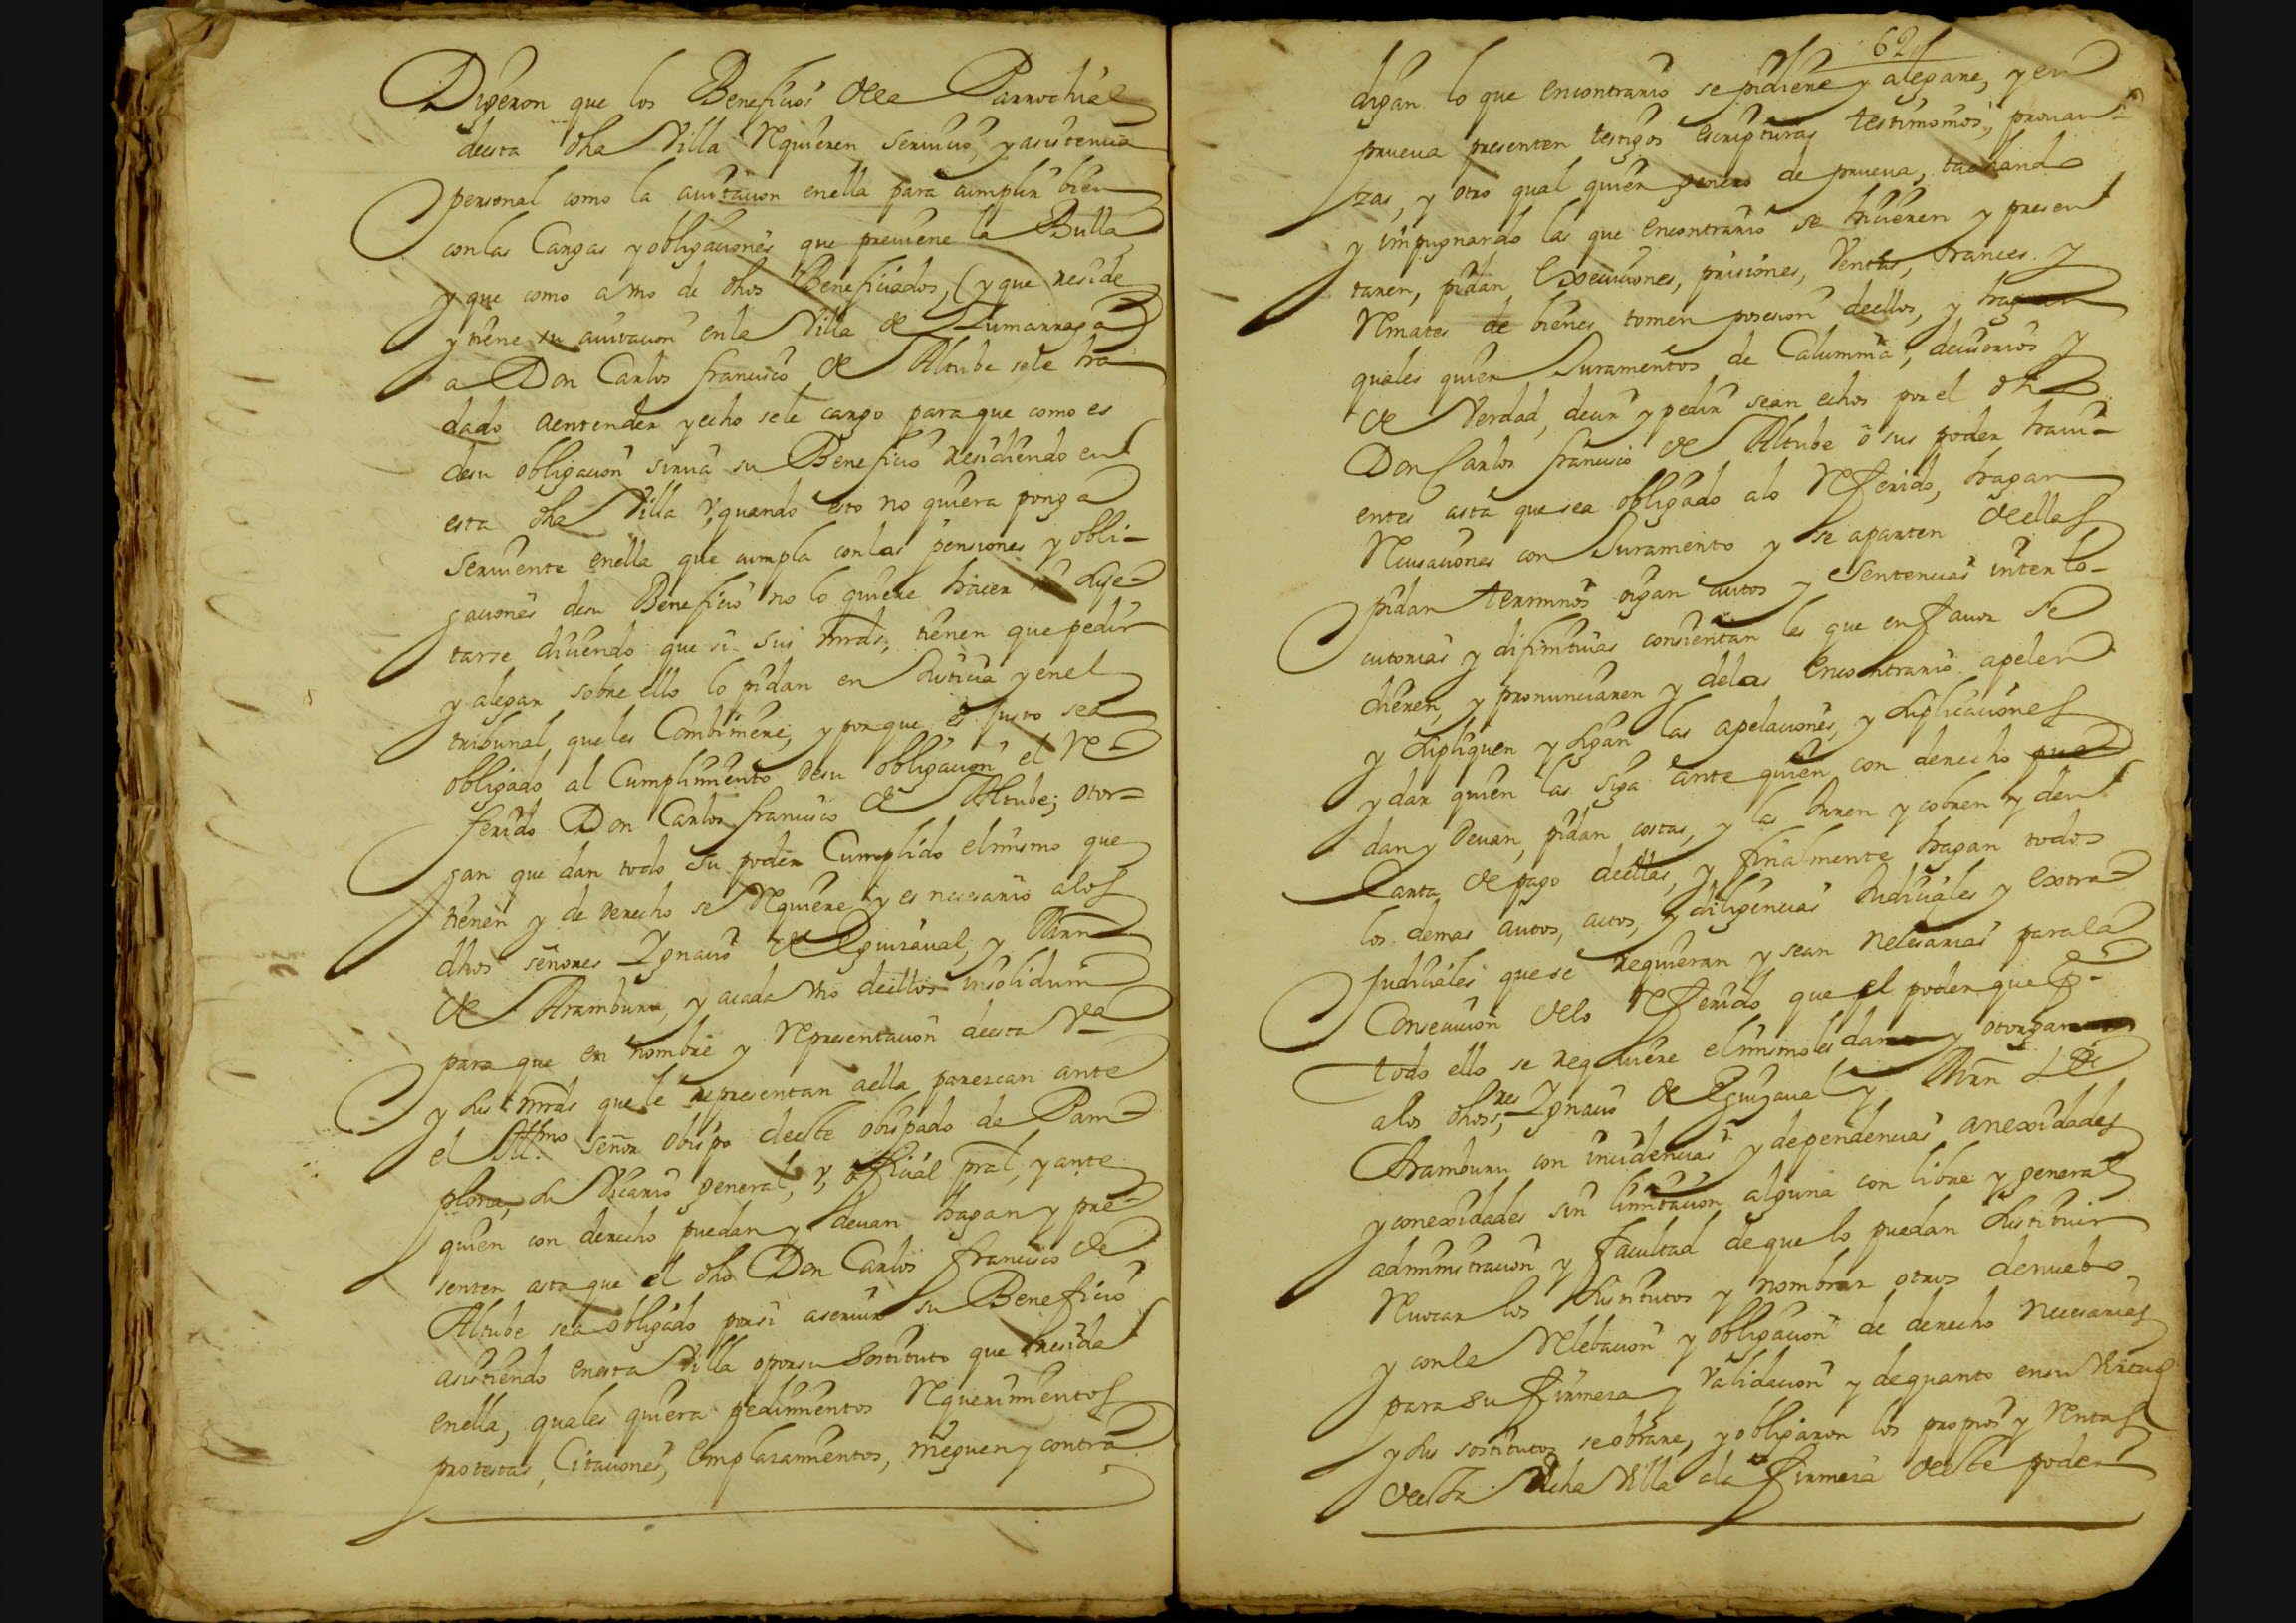 Digeron que los Beneficios dela Parrochial
deesta dha Villa Requieren seruicio, y asistencia
personal como la auitacion enella para cumplir bien
con las Cargas y obligaciones que preuiene la Bulla
y que como a vno de dhos Beneficiados, (y que reside
y tiene su auitacion en la Villa de Zumarraga)
a Don Carlos francisco de Altube sele ha
dado aentender y echo sele cargo para que como es
desu obligacion sirua su Beneficio residiendo en
esta dha Villa y, quando esto no quiera ponga
seruiente enella que cumpla con las pensiones y obli-
gaciones desu Beneficio no lo quiere hacer ni suje-
tarse diciendo que si sus mrds, tienen que pedir
y alegar sobre ello lo pidan en Justicia y enel
tribunal, que les Combiniere, y porque es justo sea
obligado al Cumplimiento desu obligacion el Re-
ferido Don Carlos francisco de Altube; otor-
gan que dan todo su poder Cumplido elmismo que
tienen y de derecho se Requiere y es necesario alos
dhos señores Ygnacio de Eguizaual, y Mrn
de Aramburu, y acada vno deellos insolidum
para que en nombre y Representacion deesta Va
y sus mrds que le representan aella parezcan ante
el Illmo señor obispo deeste obispado de Pam-
plona, su Vicario general, y, oficial pral, y ante
quien con derecho puedan y deuan hagan y pre-
senten asta que el dho Don Carlos francisco de
Altube sea obligado porsi aseruir su Beneficio
asistiendo enesta Villa o porsu sostituto que resida
enella, quales quiera pedimientos Requerimientos
protestas, Citaciones, emplazamientos, nieguen y contra
62
digan lo que encontrario se pidiere y alegare, y en
prueua presenten testigos escripturas testimonios, prouan-
zas, y otro qual quier genero de prueua, tachando
y impugnando las que encontrario se hicieren y presen
taren, pidan Execuciones, prisiones, Ventas, trances y
Remates de bienes tomen posesion deellos, y hagan
quales quier Juramentos de Calumnia, decisorios y
de Verdad, decir y pedir sean echos por el dho
Don Carlos francisco de Altube o sus poder haui-
entes asta que sea obligado alo Referido, hagan
Recusaciones con Juramento y se aparten deellas
pidan terminos oigan autos y sentencias interlo-
cutorias y difinitiuas consientan las que en fauor se
dieren, y pronunciaren y delas encontrario apelen
y supliquen y sigan las apelaciones, y suplicaciones
y dar quien las siga ante quien con derecho pue-
dan y deuan, pidan costas, y las Juren y cobren y den
Carta de pago deellas, y finalmente hagan todos
los demas autos, actos, y diligencias Judiciales y extra-
Judiciales que se requieran y sean necesarias para la
Consecucion delo Referido que el poder que
todo ello se requiere elmismo les dan y otorgan
alos dhos sres Ygnacio de Eguizaual y Mrn de
Aramburu con incidencias y dependencias anexidades
y conexidades sin limitacion alguna con libre y general
administracion y facultad de que lo puedan sustituir
Reuocar los sustitutos y nombrar otros denuebo,
y con la Relebacion y obligacion de derecho necesarias
para su firmeza y Validacion y de quanto en su Virtud
y sus sostitutos se obrare, y obligaron los propios y Rentas
deesta dicha Villa ala firmeza deeste poder